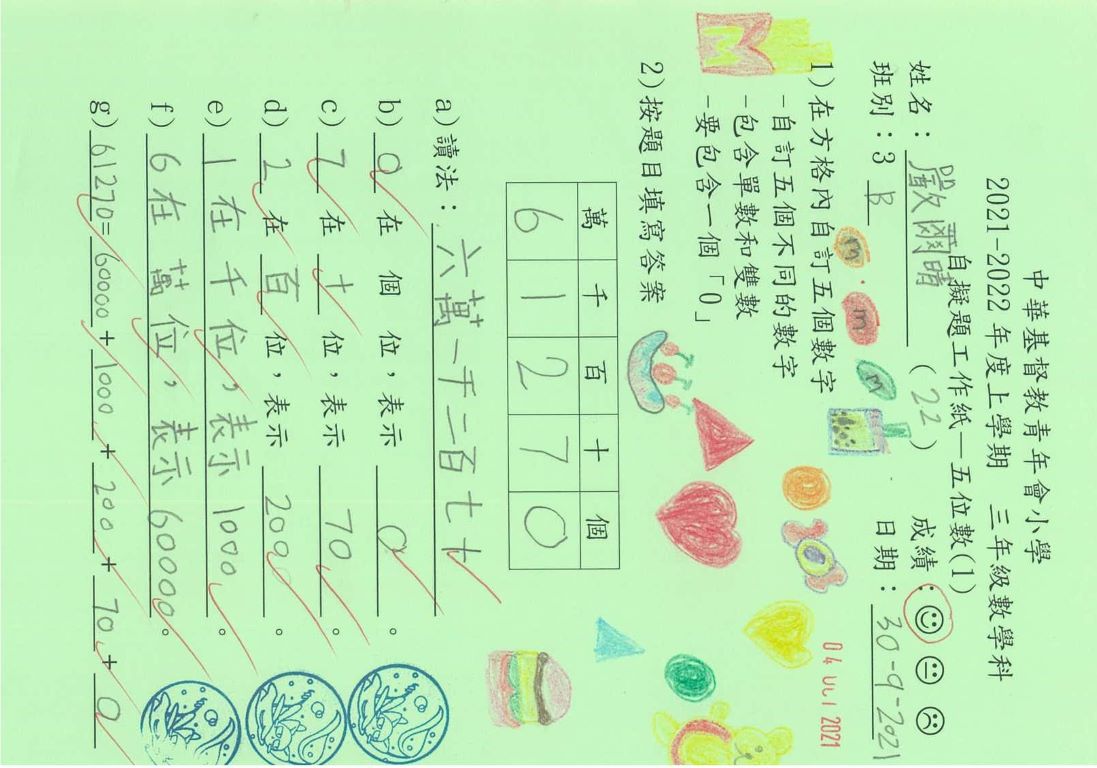 中華基督教青年會小學
2021-2022 年度上學期 三年級數學科
自擬題工作紙—五位數(1)
姓名： 嚴爾晴 (22) 成績：
班別：3 B 日期： 30-9-2021
04 OCT 2021
1) 在方格內自訂五個數字
-自訂五個不同的數字
-包含單數和雙數
-要包含一個「0」
2) 按題目填寫答案
萬 千 百 十 個
6 1 2 7 0
a) 讀法： 六萬一千二百七十
b) 0 在 個 位，表示 0 。
c) 7 在 十 位，表示 70 。
d) 2 在 百 位，表示 200 。
e) 1 在 千 位，表示 1000 。
f) 6 在 萬 位，表示 60000 。
g) 61270= 60000 + 1000 + 200 + 70 + 0